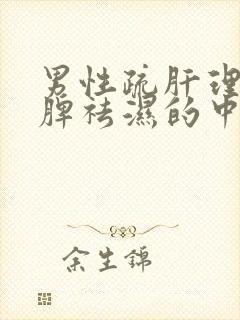 男性疏肝理
脾祛湿的中
余生锦